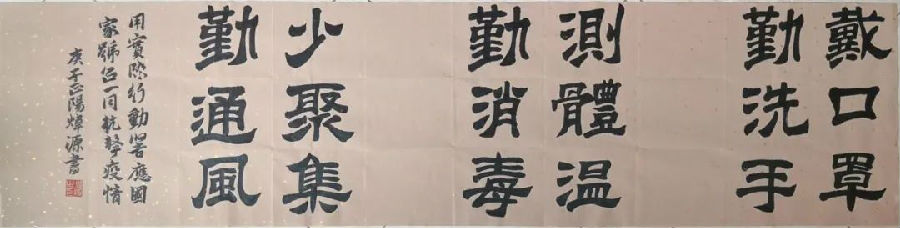 戴口罩
勤洗手
測體温
勤消毒
少聚集
勤通風
用實際行動響應國
家號召一同抗擊疫情
庚子正陽源書